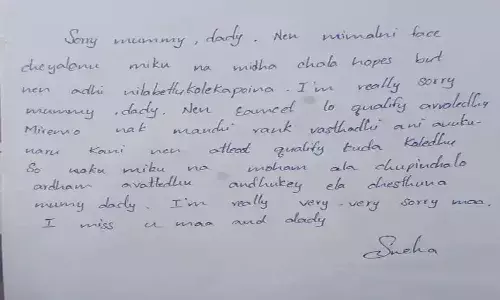 Sorry mummy, dady. Nen mimalni face
cheyalenu miku na midha chala hopes but
nen adhi nilabethukolekapoina. I'm really sorry
mummy, dady. Nen Eamcet lo qualify avvaledhu
Miremo nak manchi rank vasthadhi ani anuku-
naru kani nen atleast qualify kuda kaledhu
So naku miku na moham ala chupinchalo
ardham avatledhu andhukey ela chesthuna
mumy dady. I'm really very-very sorry maa.
I miss u maa and dady
Sneha